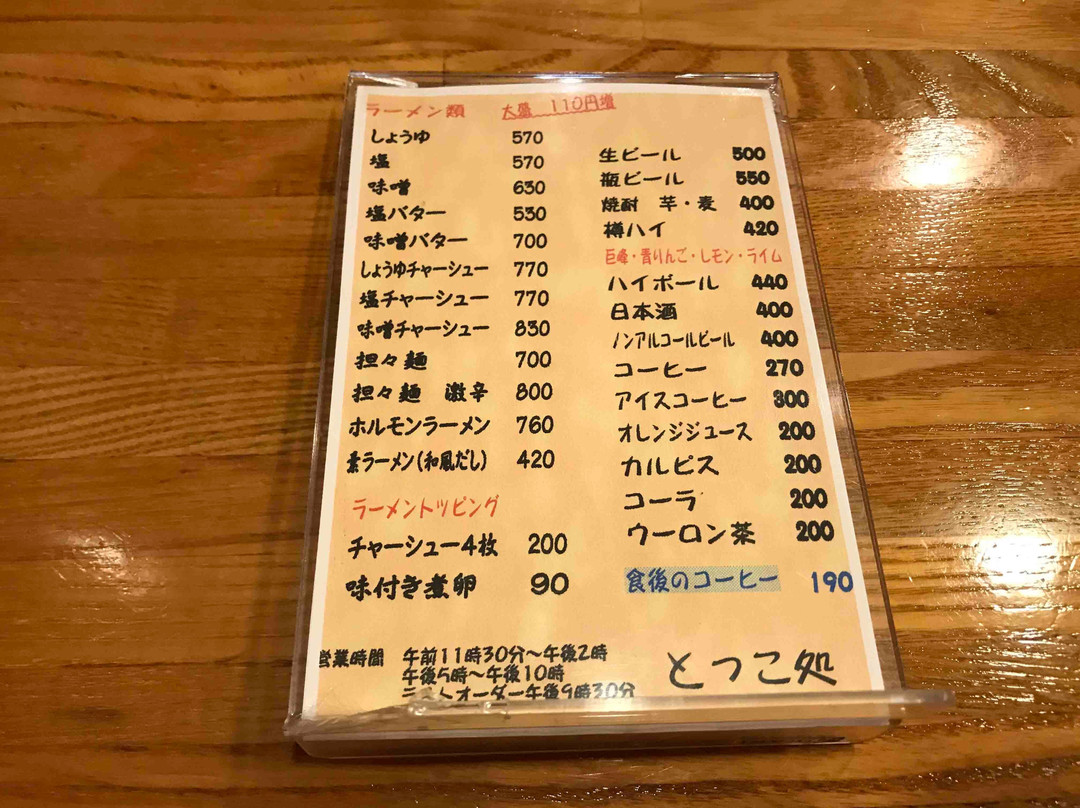 ラーメン類 大盛 110円増
しょうゆ 570
塩 570
味噌 630
塩バター 530
味噌バター 700
しょうゆチャーシュー 770
塩チャーシュー 770
味噌チャーシュー 830
担々麺 700
担々麺 激辛 800
ホルモンラーメン 760
素ラーメン(和風だし) 420
ラーメントッピング
チャーシュー4枚 200
味付き煮卵 90
生ビール 500
瓶ビール 550
焼酎 芋・麦 400
樽ハイ 420
巨峰・青りんご・レモン・ライム
ハイボール 440
日本酒 400
ノンアルコールビール 400
コーヒー 270
アイスコーヒー 300
オレンジジュース 200
カルピス 200
コーラ 200
ウーロン茶 200
食後のコーヒー 190
営業時間 午前11時30分~午後2時
午後5時~午後10時
ラストオーダー午後9時30分
とつこ処